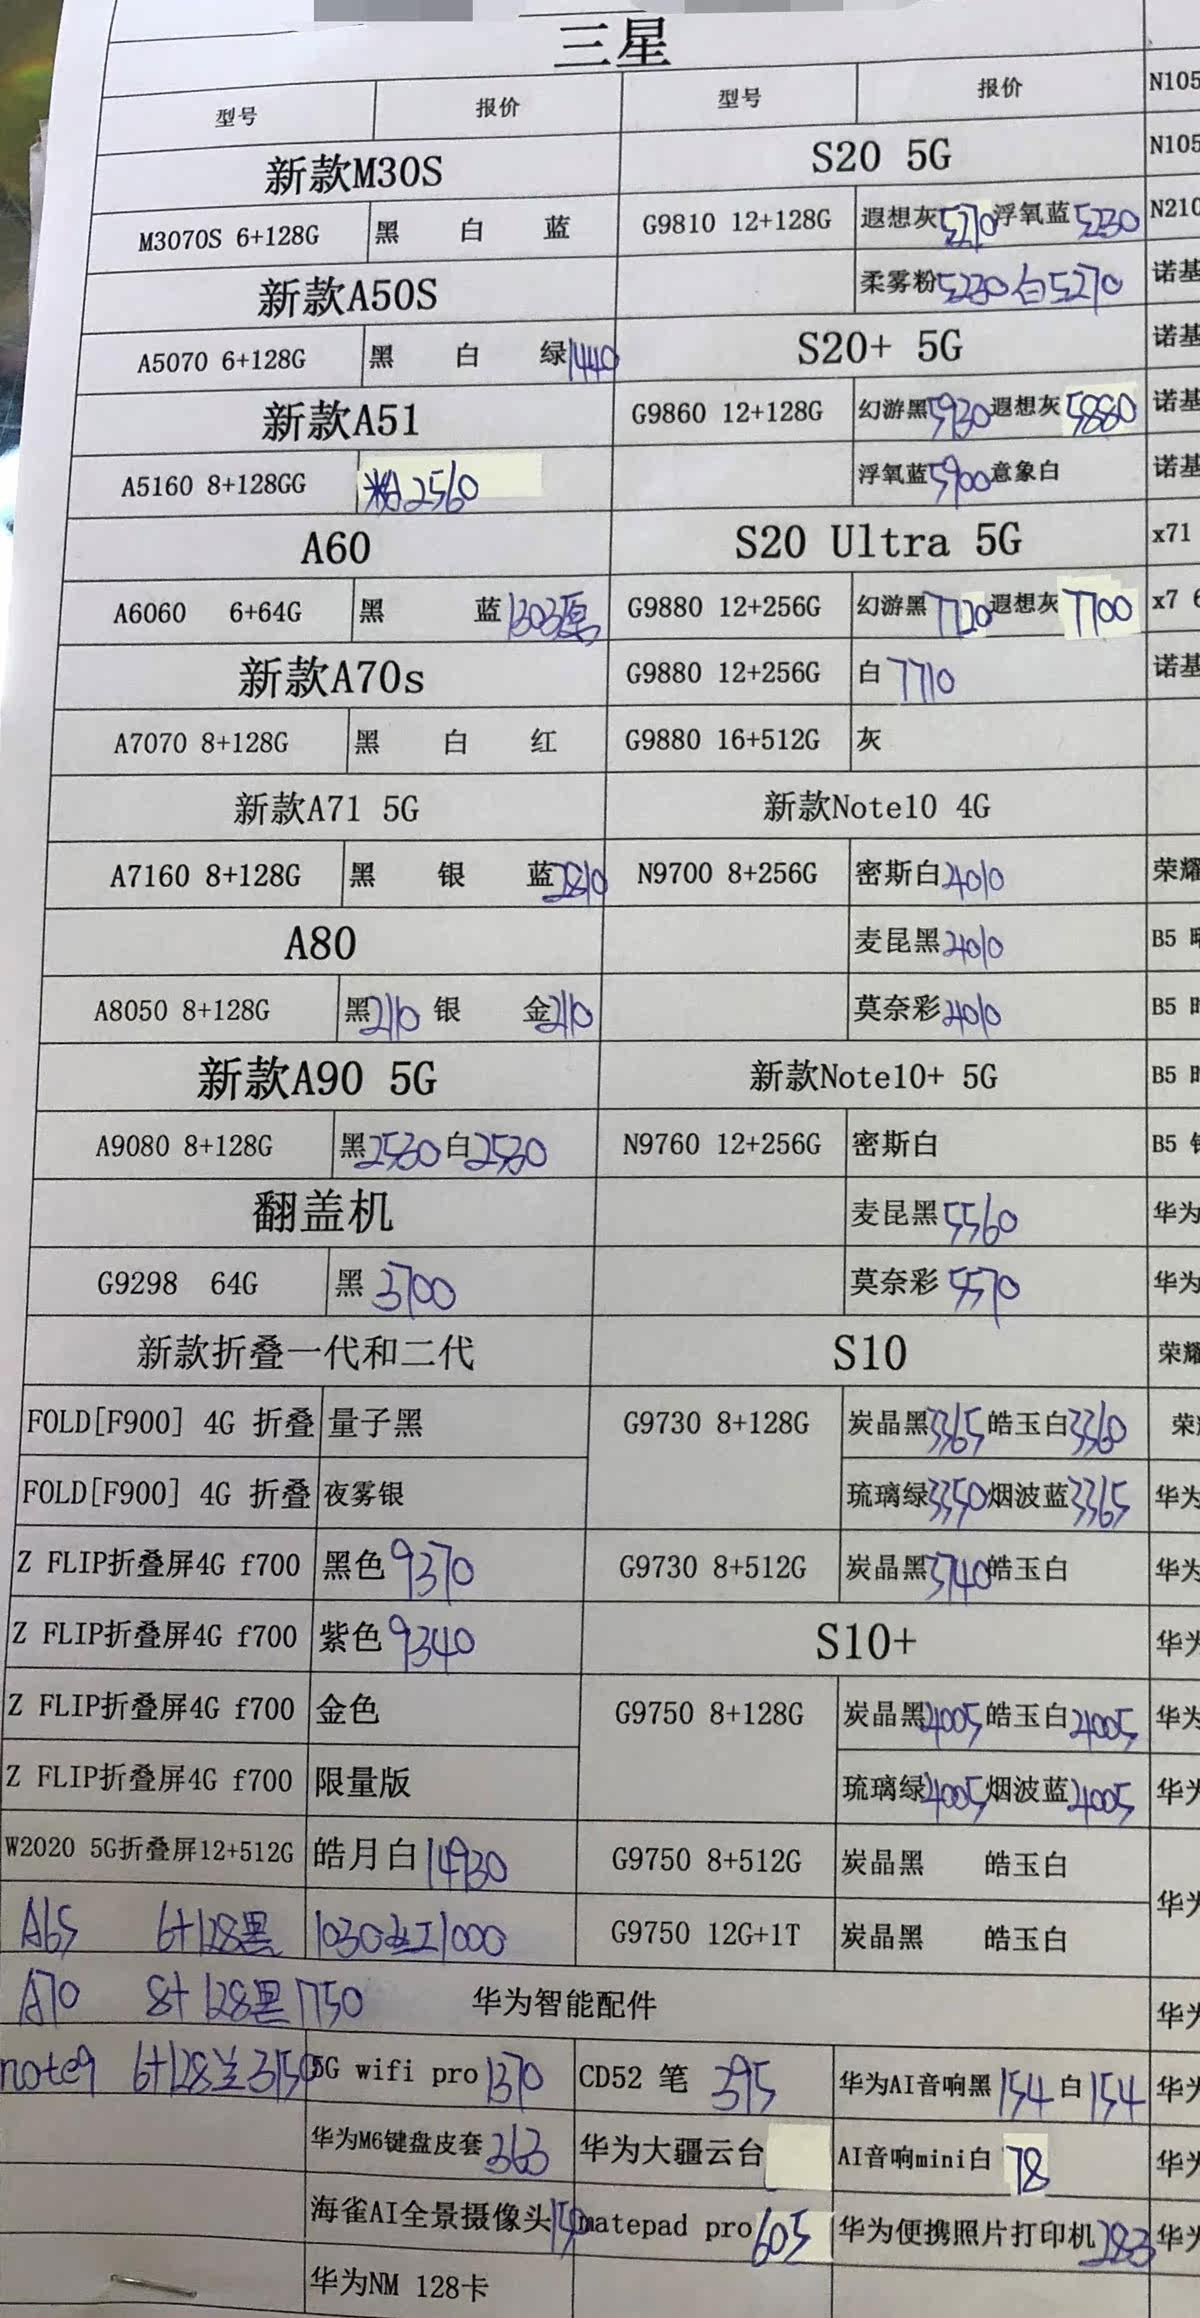 三星
型号 报价 型号 报价 N105
新款M30S S20 5G N105
M3070S 6+128G 黑 白 蓝 G9810 12+128G 遐想灰5210浮氧蓝5230 N210
新款A50S 柔雾粉5230白5270 诺基
A5070 6+128G 黑 白 绿1440 S20+ 5G 诺基
新款A51 G9860 12+128G 幻游黑5930遐想灰5880 诺基
A5160 8+128GG 粉2560 浮氧蓝5900意象白 诺基
A60 S20 Ultra 5G x71
A6060 6+64G 黑 蓝1303原 G9880 12+256G 幻游黑7720遐想灰7700 x7 6
新款A70s G9880 12+256G 白7710 诺基
A7070 8+128G 黑 白 红 G9880 16+512G 灰
新款A71 5G 新款Note10 4G
A7160 8+128G 黑 银 蓝2810 N9700 8+256G 密斯白4010 荣耀
A80 麦昆黑4010 B5
A8050 8+128G 黑210 银 金210 莫奈彩4010 B5
新款A90 5G 新款Note10+ 5G B5
A9080 8+128G 黑2530白2530 N9760 12+256G 密斯白 B5
翻盖机 麦昆黑5560 华为
G9298 64G 黑 3700 莫奈彩 5570 华为
新款折叠一代和二代 S10 荣耀
FOLD[F900] 4G 折叠 量子黑 G9730 8+128G 炭晶黑3365皓玉白3360 荣
FOLD[F900] 4G 折叠 夜雾银 琉璃绿3350烟波蓝3365 华为
Z FLIP折叠屏4G f700 黑色9370 G9730 8+512G 炭晶黑3740皓玉白 华为
Z FLIP折叠屏4G f700 紫色9340 S10+ 华为
Z FLIP折叠屏4G f700 金色 G9750 8+128G 炭晶黑4005皓玉白4005 华为
Z FLIP折叠屏4G f700 限量版 琉璃绿4005烟波蓝4005 华为
W2020 5G折叠屏12+512G 皓月白14930 G9750 8+512G 炭晶黑 皓玉白
A6S 6+128黑 1030红1000 G9750 12G+1T 炭晶黑 皓玉白 华为
A70 8+128黑1750 华为智能配件 华为
note9 6+128兰3150 5G wifi pro 1370 CD52 笔 395 华为AI音响黑154 白154 华为
华为M6键盘皮套363 华为大疆云台 AI音响mini白 78 华为
海雀AI全景摄像头 matepad pro605 华为便携照片打印机283 华为
华为NM 128卡